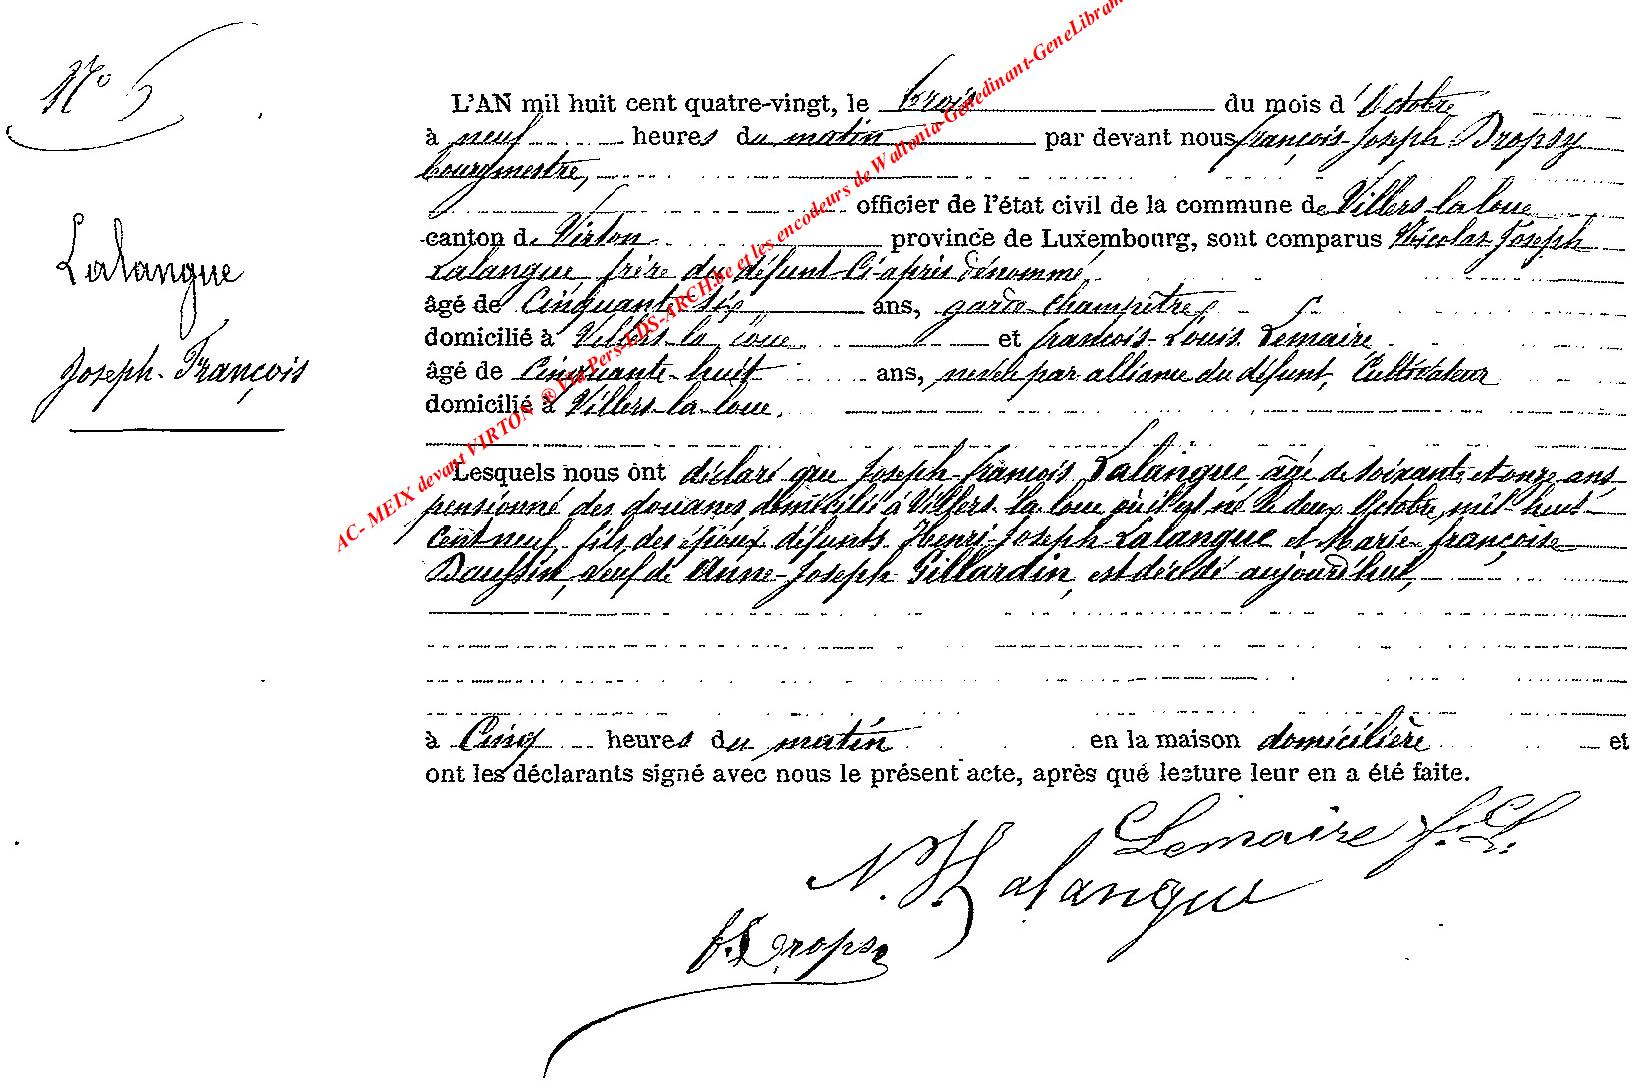 N° 5
Lalangue
Joseph-François
L'AN mil huit cent quatre-vingt, le trois du mois d'Octobre
à neuf heures du matin par devant nous françois-Joseph Dropsy
bourgmestre,
officier de l'état civil de la commune de Villers-la-loue
canton de Virton province de Luxembourg, sont comparus Nicolas-Joseph
Lalangue, frère du défunt ci-après dénommé,
âgé de Cinquante-six ans, garde-champêtre,
domicilié à Villers-la-loue et françois-Louis Lemaire,
âgé de Cinquante-huit ans, neveu par alliance du défunt, Cultivateur
domicilié à Villers-la-loue,
Lesquels nous ont déclaré que Joseph-françois Lalangue, âgé de soixante et onze ans,
pensionné des douanes domicilié à Villers-la-loue où il est né le deux Octobre mil huit
Cent neuf, fils des époux défunts Henri-Joseph Lalangue et Marie-françoise
veuf de Anne-Joseph Gillardin, est décédé aujourd'hui,
à Cinq heures du matin en la maison domicilière et
ont les déclarants signé avec nous le présent acte, après que lecture leur en a été faite.
Lemaire f. L.
N. J. Lalangue
f. J. Dropsy
AC- MEIX devant VIRTON ® Eta Pers-LDS-ARCH.be et les encodeurs de Wallonia-Genedinant-GeneLibram